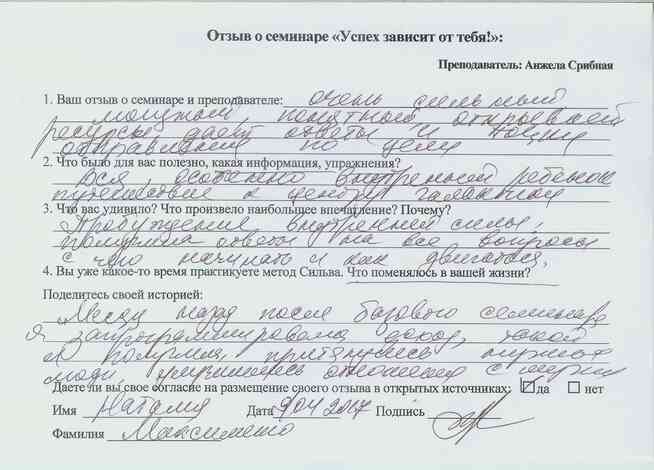 Отзыв о семинаре «Успех зависит от тебя!»:
Преподаватель: Анжела Срибная
1. Ваш отзыв о семинаре и преподавателе: очень сильный
мощный, понятный открывает
ресурсы даёт ответы и
по делу
2. Что было для вас полезно, какая информация, упражнения?
Вся, особенно внутренний ребенок
путешествие к центру галактики
3. Что вас удивило? Что произвело наибольшее впечатление? Почему?
Пробуждение внутренней силы,
получила ответы на все вопросы
с чего начинать и как двигаться.
4. Вы уже какое-то время практикуете метод Сильва. Что поменялось в вашей жизни?
Поделитесь своей историей:
Месяц назад после базового семинара
я запрограммировала доход, такой
и получила, притянулись нужные
люди, улучшились отношения с
Даете ли вы свое согласие на размещение своего отзыва в открытых источниках: да нет
Имя Наталия Дата 9.04 2017 Подпись
Фамилия Максименко